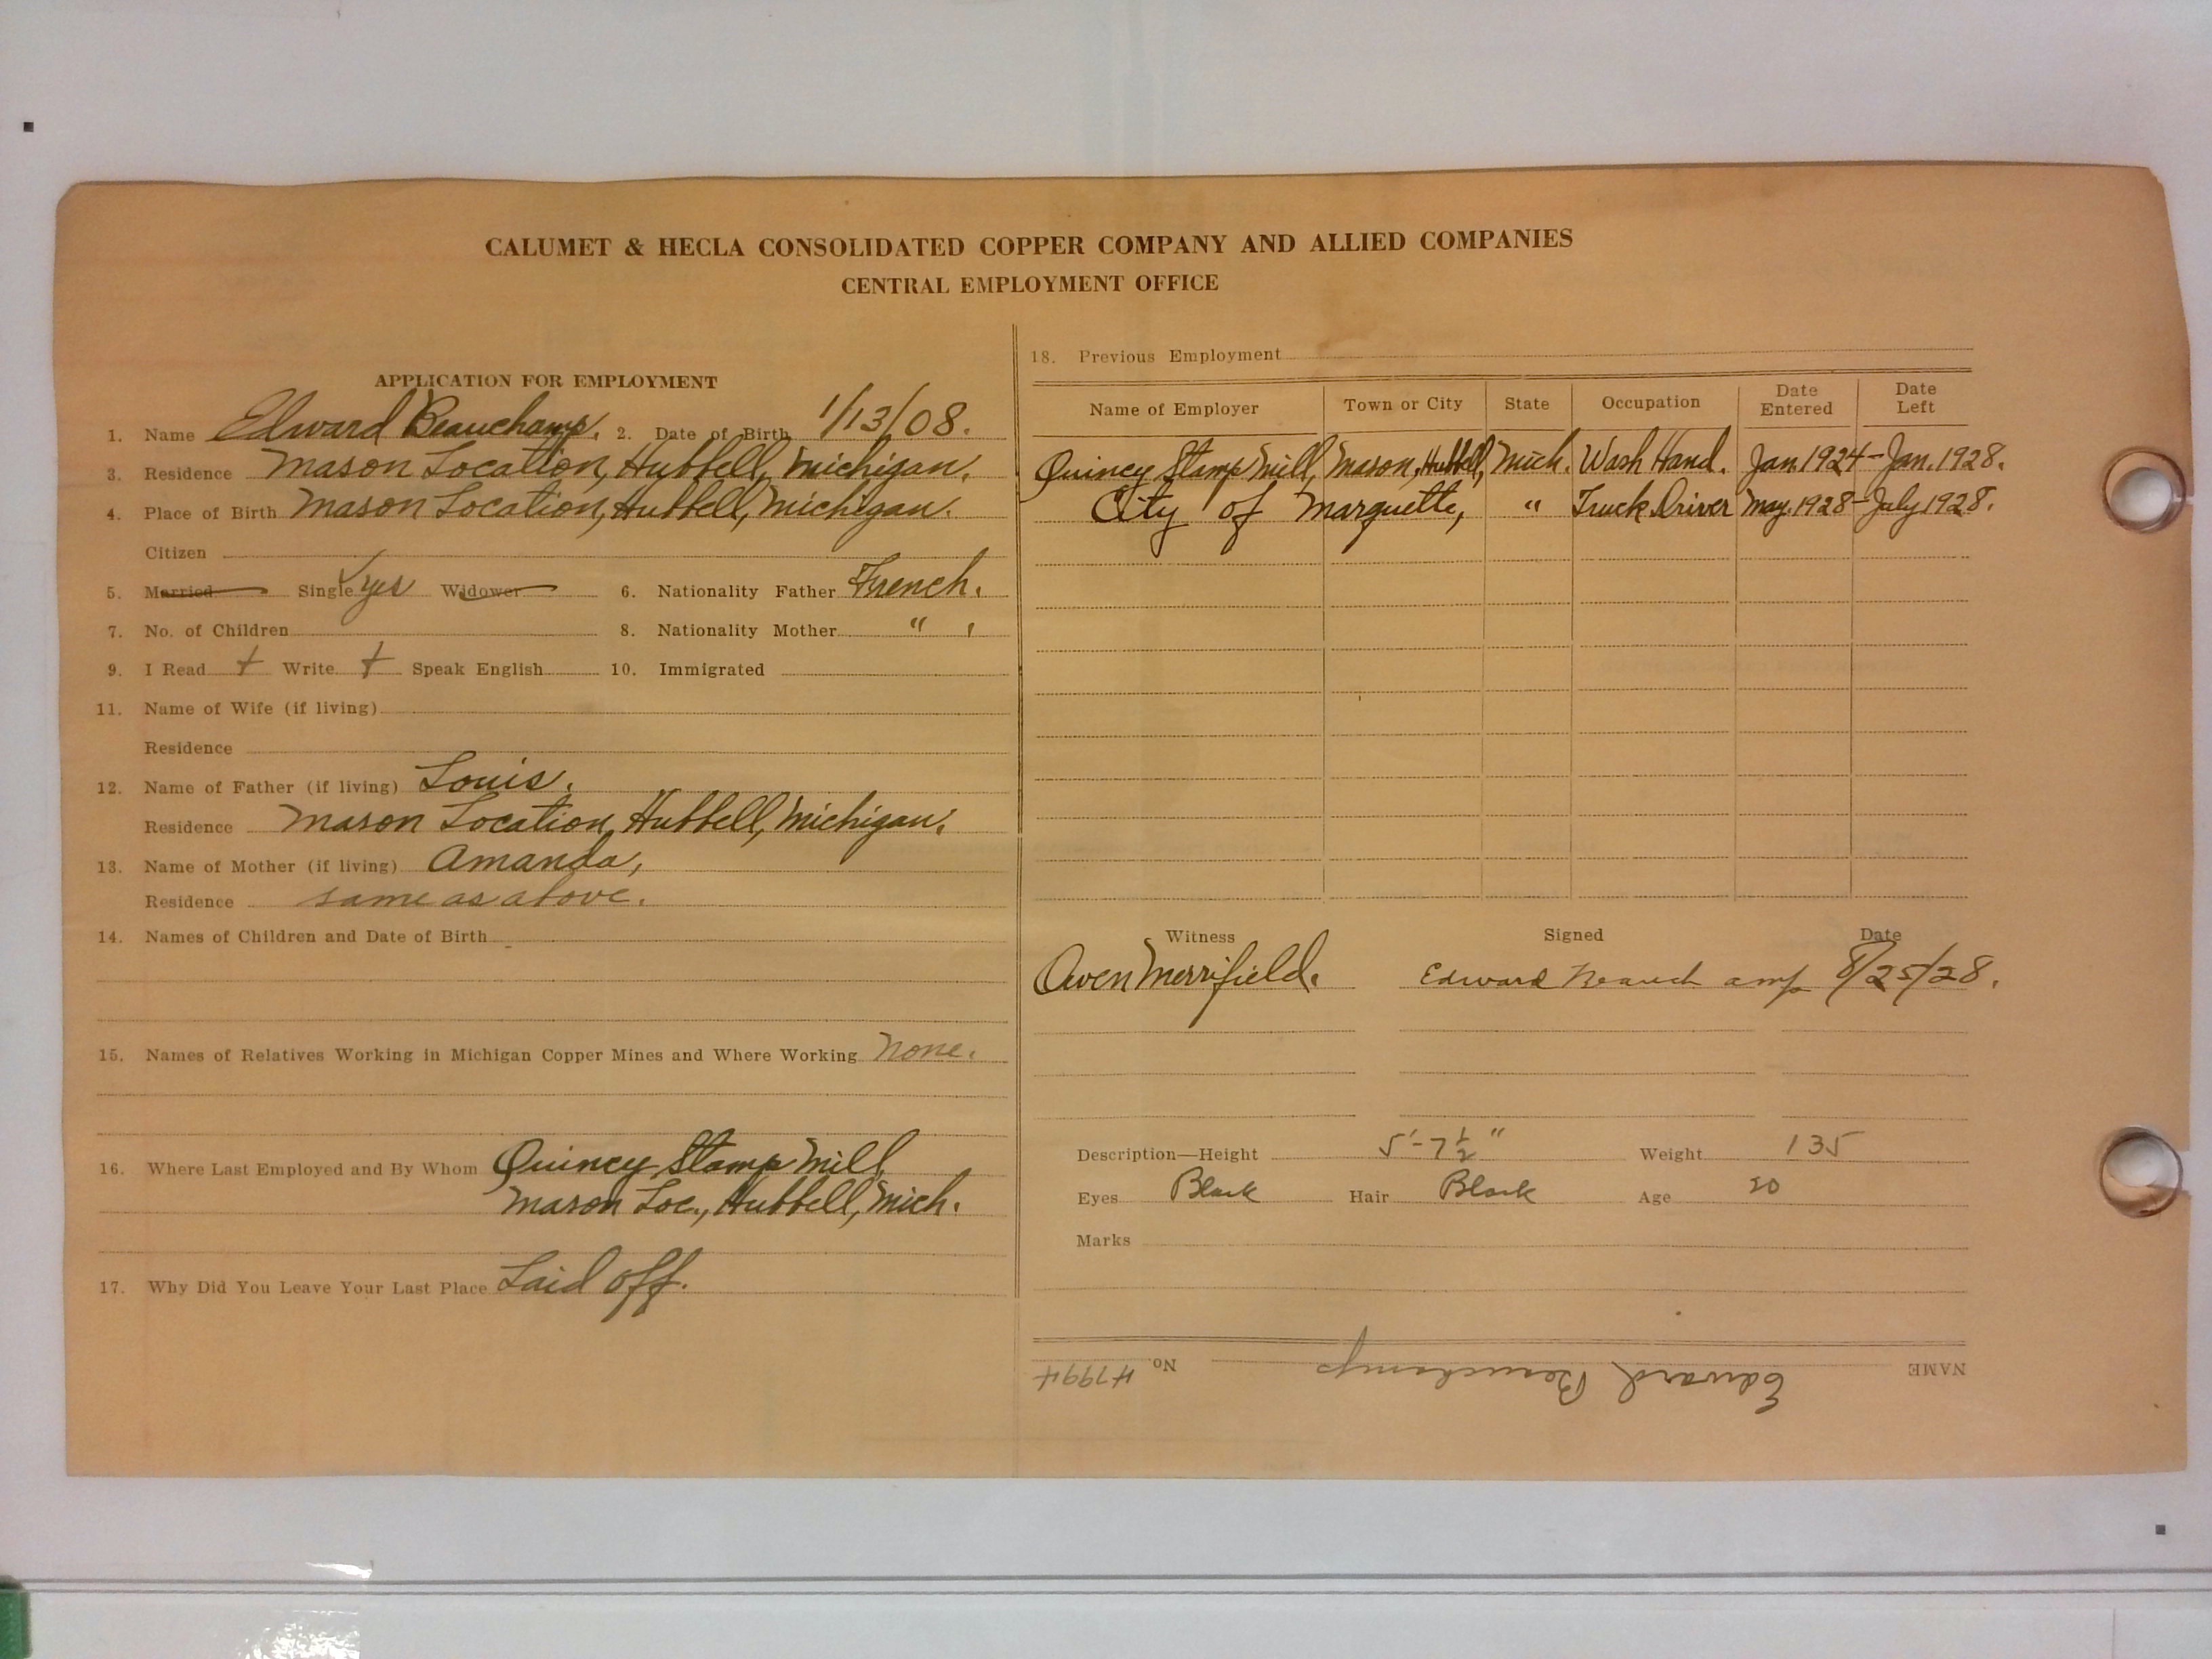 CALUMET & HECLA CONSOLIDATED COPPER COMPANY AND ALLIED COMPANIES
CENTRAL EMPLOYMENT OFFICE
APPLICATION FOR EMPLOYMENT
1. Name Edward Beauchamp. 2. Date of Birth 1/13/08.
3. Residence Mason Location, Hubbell, Michigan.
4. Place of Birth Mason Location, Hubbell, Michigan.
Citizen
5. Married Single yes Widower 6. Nationality Father French.
7. No. of Children 8. Nationality Mother "
9. I Read + Write + Speak English 10. Immigrated
11. Name of Wife (if living)
Residence
12. Name of Father (if living) Louis.
Residence Mason Location, Hubbell, Michigan.
13. Name of Mother (if living) Amanda,
Residence same as above.
14. Names of Children and Date of Birth
15. Names of Relatives Working in Michigan Copper Mines and Where Working None.
16. Where Last Employed and By Whom Quincy Stamp Mill,
Mason Loc., Hubbell, Mich.
17. Why Did You Leave Your Last Place Laid off.
18. Previous Employment
Name of Employer Town or City State Occupation Date Entered Date Left
Quincy Stamp Mill, Mason, Hubbell, Mich. Wash Hand. Jan 1924 - Jan. 1928.
City of Marquette, " Truck Driver May. 1928 - July 1928.
Witness Signed Date
Owen Merrifield. Edward Beauch amp 8/25/28.
Description—Height 5'-7½" Weight 135
Eyes Black Hair Black Age 20
Marks
NAME Edward Beauchamp No. 47994